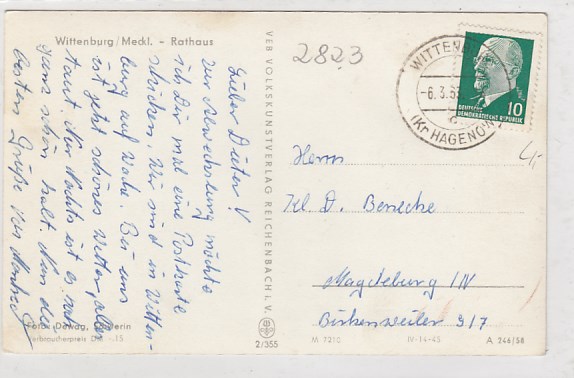 Wittenburg/Meckl. - Rathaus
Lieber Dieter!
Zur Abwechslung möchte
ich Dir mal eine Postkarte
schicken. Wir sind in Witten-
burg auf Bei uns
ist jetzt schönes Wetter, aber
taut. Nur Nachts ist es noch
ganz schön kalt. Nun die
besten Grüße von
Foto: Dewag, Schwerin
Verbraucherpreis DM -.15
VEB VOLKSKUNSTVERLAG REICHENBACH I. V.
2/355
2823
WITTENBURG
-6.3.63
(Kr HAGENOW)
DEUTSCHE
DEMOKRATISCHE REPUBLIK
10
4,-
Herrn
Kl. D. Benecke
Magdeburg / N
Birkenweiler 317
M 7310
IV-14-45
A 246/58